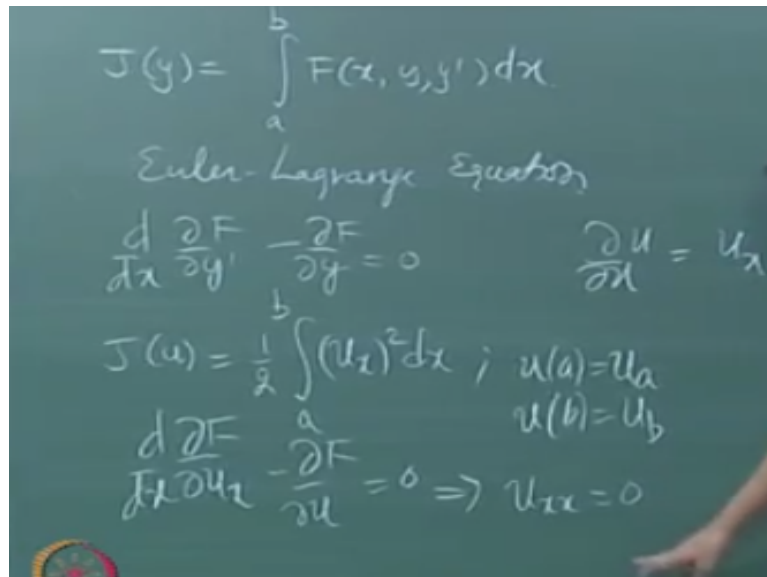 J(y) = ∫_a^b F(x, y, y') dx
Euler-Lagrange Equation
d/dx ∂F/∂y' - ∂F/∂y = 0
∂u/∂x = u_x
J(u) = 1/2 ∫_a^b (u_x)^2 dx ; u(a) = u_a
u(b) = u_b
d/dx ∂F/∂u_x - ∂F/∂u = 0 ⇒ u_xx = 0